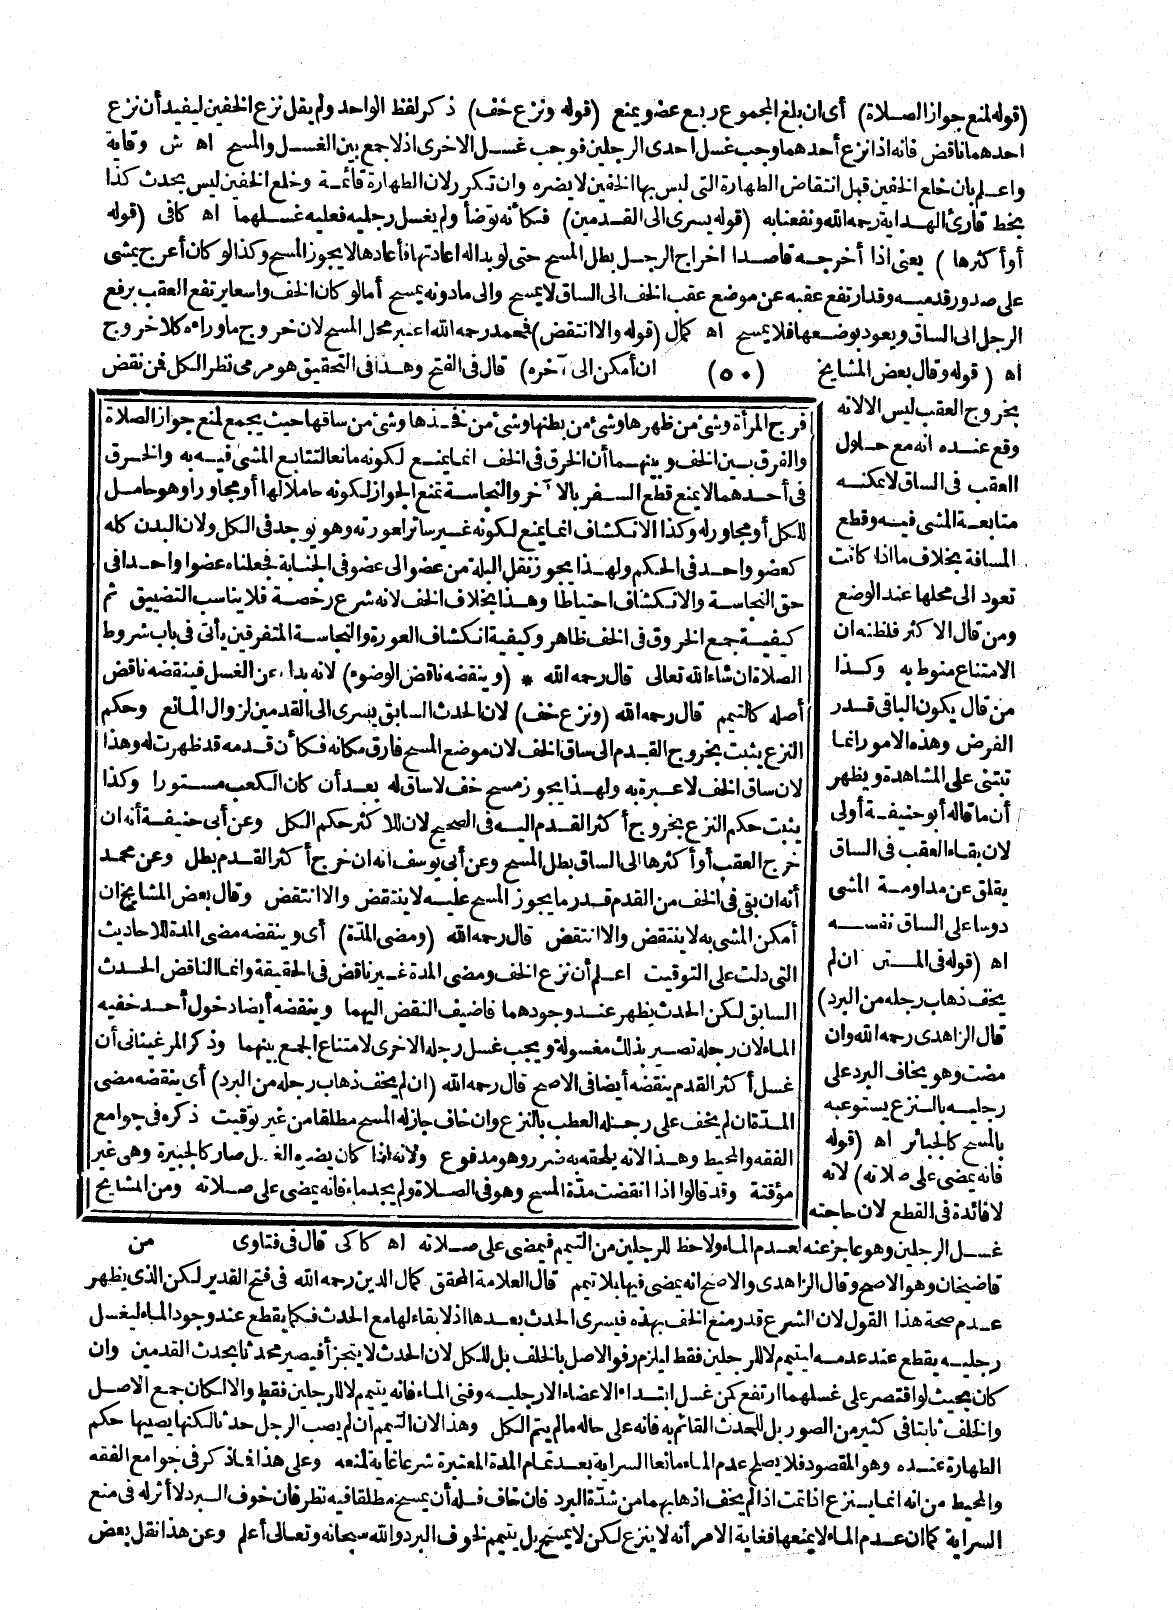 (قوله لمنع جواز الصلاة) أى ان بلغ المجموع ربع عضو يمنع (قوله ونزع خف) ذكر لفظ الواحد ولم يقل نزع الخفين ليفيد أن نزع
احدهما ناقض فانه اذا نزع أحدهما وجب غسل احدى الرجلين فوجب غسل الاخرى اذ لا جمع بين الغسل والمسح اه ش وقاية
واعلم بان خلع الخفين قبل انتقاض الطهارة التى لبس بها الخفين لا يضره وان تكرر لان الطهارة قائمة وخلع الخفين ليس بحدث كذا
بخط قارئ الهداية رحمه الله ونفعنا به (قوله يسرى الى القدمين) فكأنه توضأ ولم يغسل رجليه فعليه غسلهما اه كافى (قوله
أوأكثرها) يعنى اذا أخرجه قاصدا اخراج الرجل بطل المسح حتى لو بدا له اعادتها فأعادها لا يجوز المسح وكذا لو كان أعرج يمشى
على صدور قدميه وقد ارتفع عقبه عن موضع عقب الخف الى الساق لا يمسح والى مادونه يمسح أما لو كان الخف واسعا يرتفع العقب برفع
الرجل الى الساق ويعود بوضعها فلا يمسح اه كمال (قوله والا انتقض) فمحمد رحمه الله اعتبر محل المسح لان خروج ماوراءه كلا خروج
اه (قوله وقال بعض المشايخ (٥٠) ان أمكن الى آخره) قال فى الفتح وهذا فى التحقيق هو مرمى نظر الكل فمن نقض
بخروج العقب ليس الا لانه
وقع عنده انه مع حلول
العقب فى الساق لا يمكنه
متابعة المشى فيه وقطع
المسافة بخلاف ما اذا كانت
تعود الى محلها عند الوضع
ومن قال الاكثر فلظنه ان
الامتناع منوط به وكذا
من قال يكون الباقى قدر
الفرض وهذه الامور انما
تبتنى على المشاهدة ويظهر
أن ما قاله أبو حنيفة أولى
لان بقاء العقب فى الساق
يقلق عن مداومة المشى
دوسا على الساق نفسه
اه (قوله فى المتن ان لم
يخف ذهاب رجله من البرد)
قال الزاهدى رحمه الله وان
مضت وهو يخاف البرد على
رجليه بالنزع يستوعبه
بالمسح كالجبائر اه (قوله
فانه يمضى على صلاته) لانه
لا فائدة فى القطع لان حاجته
فرج المرأة وشئ من ظهرها وشئ من بطنها وشئ من فخذها وشئ من ساقها حيث يجمع لمنع جواز الصلاة
والفرق بين الخف وبينهما أن الخرق فى الخف انما يمنع لكونه مانعا لتتابع المشى فيه به والخرق
فى أحدهما لا يمنع قطع السفر بالآخر والنجاسة تمنع الجواز لكونه حاملا لها أو مجاورا وهو حامل
للكل أو مجاور له وكذا الانكشاف انما يمنع لكونه غير ساتر لعورته وهو يوجد فى الكل ولان البدن كله
كعضو واحد فى الحكم ولهذا يجوز نقل البلة من عضو الى عضو فى الجنابة فجعلناه عضوا واحدا فى
حق النجاسة والانكشاف احتياطا وهذا بخلاف الخف لانه شرع رخصة فلا يناسب التضييق ثم
كيفية جمع الخروق فى الخف ظاهر وكيفية انكشاف العورة والنجاسة المتفرقين يأتى فى باب شروط
الصلاة ان شاء الله تعالى قال رحمه الله * (وينقضه ناقض الوضوء) لانه بدل عن الغسل فينقضه ناقض
أصله كالتيمم قال رحمه الله (ونزع خف) لان الحدث السابق يسرى الى القدمين لزوال المانع وحكم
النزع يثبت بخروج القدم الى ساق الخف لان موضع المسح فارق مكانه فكأن قدمه قد ظهرت له وهذا
لان ساق الخف لا عبرة به ولهذا يجوز مسح خف لا ساق له بعد أن كان الكعب مستورا وكذا
يثبت حكم النزع بخروج أكثر القدم اليه فى الصحيح لان للاكثر حكم الكل وعن أبى حنيفة أنه ان
خرج العقب أو أكثرها الى الساق بطل المسح وعن أبى يوسف انه ان خرج أكثر القدم بطل وعن محمد
أنه ان بقى فى الخف من القدم قدر ما يجوز المسح عليه لا ينتقض والا انتقض وقال بعض المشايخ ان
أمكن المشى به لا ينتقض والا انتقض قال رحمه الله (ومضى المدّة) أى وينقضه مضى المدة للاحاديث
التى دلت على التوقيت اعلم أن نزع الخف ومضى المدة غير ناقض فى الحقيقة وانما الناقض الحدث
السابق لكن الحدث يظهر عند وجودهما فاضيف النقض اليهما وينقضه أيضا دخول أحد خفيه
الماء لان رجله تصير بذلك مغسولة ويجب غسل رجله الاخرى لامتناع الجمع بينهما وذكر المرغينانى أن
غسل أكثر القدم ينقضه أيضا فى الاصح قال رحمه الله (ان لم يخف ذهاب رجله من البرد) أى ينقضه مضى
المدّة ان لم يخف على رجله العطب بالنزع وان خاف جاز له المسح مطلقا من غير توقيت ذكره فى جوامع
الفقه والمحيط وهذا لانه يلحقه به ضرر وهو مدفوع ولانه اذا كان يضره الغسل صار كالجبيرة وهى غير
مؤقتة وقد قالوا اذا انقضت مدّة المسح وهو فى الصلاة ولم يجد ماء فانه يمضى على صلاته ومن المشايخ
غسل الرجلين وهو عاجز عنه لعدم الماء ولا حظ للرجلين من التيمم فيمضى على صلاته اه كاكى قال فى فتاوى من
قاضيخان وهو الاصح وقال الزاهدى والاصح انه يمضى فيها بلا تيمم قال العلامة المحقق كمال الدين رحمه الله فى فتح القدير لكن الذى يظهر
عدم صحة هذا القول لان الشرع قدر منع الخف بهذه فيسرى الحدث بعدها اذ لا بقاء لها مع الحدث فكما يقطع عند وجود الماء ليغسل
رجليه يقطع عند عدمه ليتيمم لا للرجلين فقط ليلزم رفو الاصل بالخلف بل للكل لان الحدث لا يتجزأ فيصير محدثا بحدث القدمين وان
كان بحيث لو اقتصر على غسلهما ارتفع كمن غسل ابتداء الاعضاء الا رجليه وفنى الماء فانه يتيمم لا للرجلين فقط والا لكان جمع الاصل
والخلف ثابتا فى كثير من الصور بل للحدث القائم به فانه على حاله ما لم يتم الكل وهذا لان التيمم ان لم يصب الرجل حدثا لكنها يصيبها حكم
الطهارة عنده وهو المقصود فلا يصلح عدم الماء مانعا السراية بعد تمام المدة المعتبرة شرعا غاية لمنعه وعلى هذا فاذكر فى جوامع الفقه
والمحيط من انه انما ينزع اذا تمت اذا لم يخف اذهابهما من شدّة البرد فان خاف فله أن يمسح مطلقا فيه نظر فان خوف البرد لا أثر له فى منع
السراية كما ان عدم الماء لا يمنعها فغاية الامر أنه لا ينزع لكن لا يمسح بل يتيمم لخوف البرد والله سبحانه وتعالى أعلم وعن هذا نقل بعض